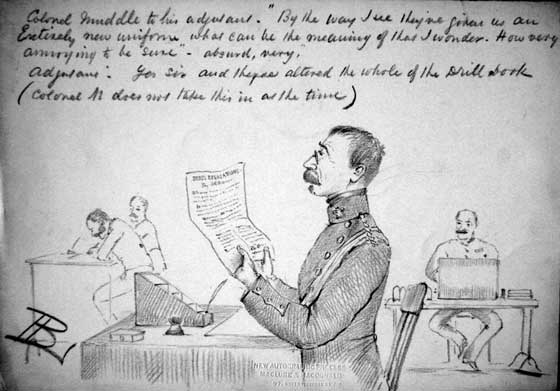 Colonel Muddle to his adjutant. "By the way I see they've given us an
Entirely new uniform what can be the meaning of that I wonder. How very
annoying to be "sure". absurd, very."
Adjutant: Yes Sir and they've altered the whole of the Drill Book
(Colonel M does not take this in at the time)
NEW AUTOGRAPHIC PROCESS
MACLURE & MACDONALD